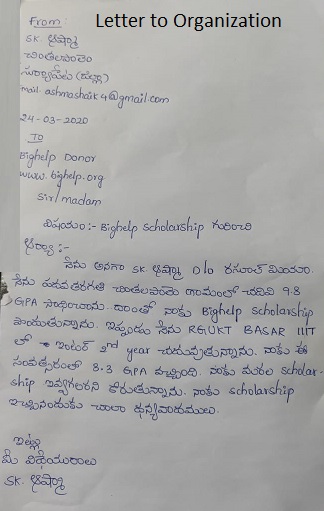 Letter to Organization
From:
SK. ఆష్మా
చింతలపాలెం
సూర్యాపేట (జిల్లా)
mail. ashmashaik4@gmail.com
24-03-2020
To
Bighelp Donor
www.bighelp.org
Sir/madam
విషయం:- Bighelp Scholarship గురించి
ఆర్యా:-
నేను అనగా SK. ఆష్మా D/o రసూల్ మియా.
నేను పదవతరగతి చింతలపాలెం గ్రామంలో చదివి 9.8
GPA సాధించాను. దాంతో నాకు Bighelp scholarship
పొందుతున్నాను. ఇప్పుడు నేను RGUKT BASAR IIIT
లో ఇంటర్ 2nd year చదువుతున్నాను. నాకు ఈ
సంవత్సరంలో 8.3 GPA వచ్చింది. నాకు మరల scholar-
ship ఇవ్వగలరని కోరుతున్నాను. నాకు scholarship
ఇచ్చినందుకు చాలా ధన్యవాదములు.
ఇట్లు
మీ విధేయురాలు
SK. ఆష్మా